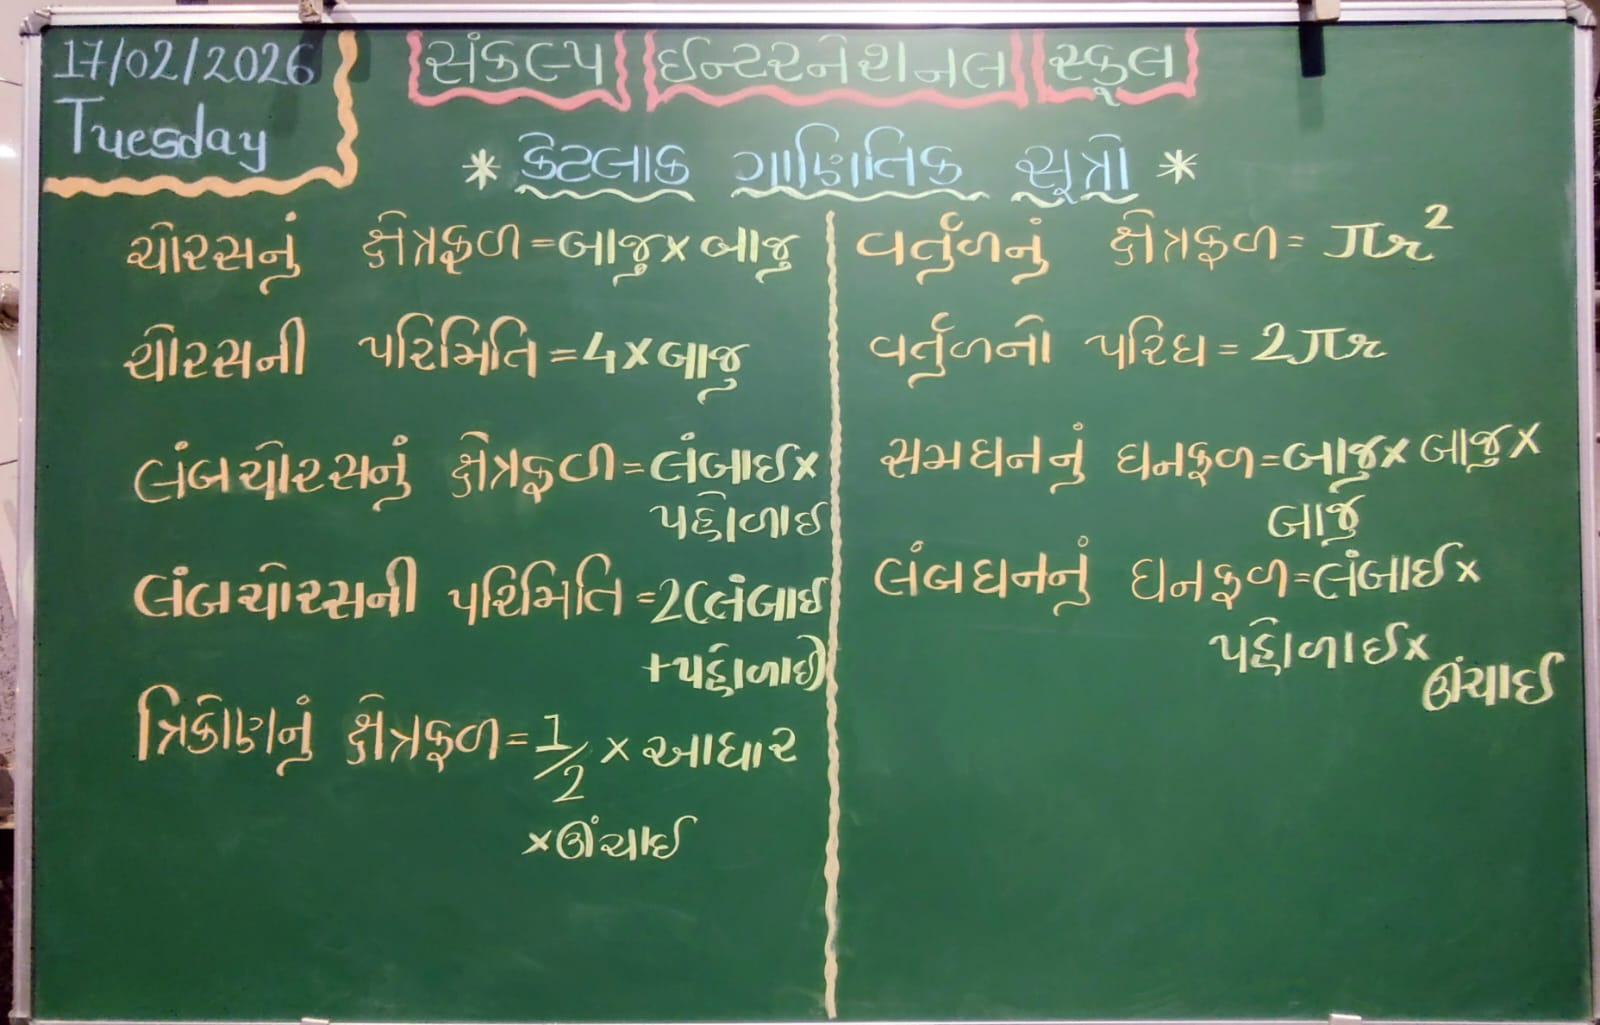 17/02/2026
Tuesday
સંકલ્પ ઈન્ટરનેશનલ સ્કૂલ
* કેટલાક ગાણિતિક સૂત્રો *
ચોરસનું ક્ષેત્રફળ = બાજુ x બાજુ
ચોરસની પરિમિતિ = 4 x બાજુ
લંબચોરસનું ક્ષેત્રફળ = લંબાઈ x
પહોળાઈ
લંબચોરસની પરિમિતિ = 2(લંબાઈ
+પહોળાઈ)
ત્રિકોણનું ક્ષેત્રફળ = 1/2 x આધાર
x ઊંચાઈ
વર્તુળનું ક્ષેત્રફળ = πr²
વર્તુળનો પરિઘ = 2πr
સમઘનનું ઘનફળ = બાજુ x બાજુ x
બાજુ
લંબઘનનું ઘનફળ = લંબાઈ x
પહોળાઈ x
ઊંચાઈ